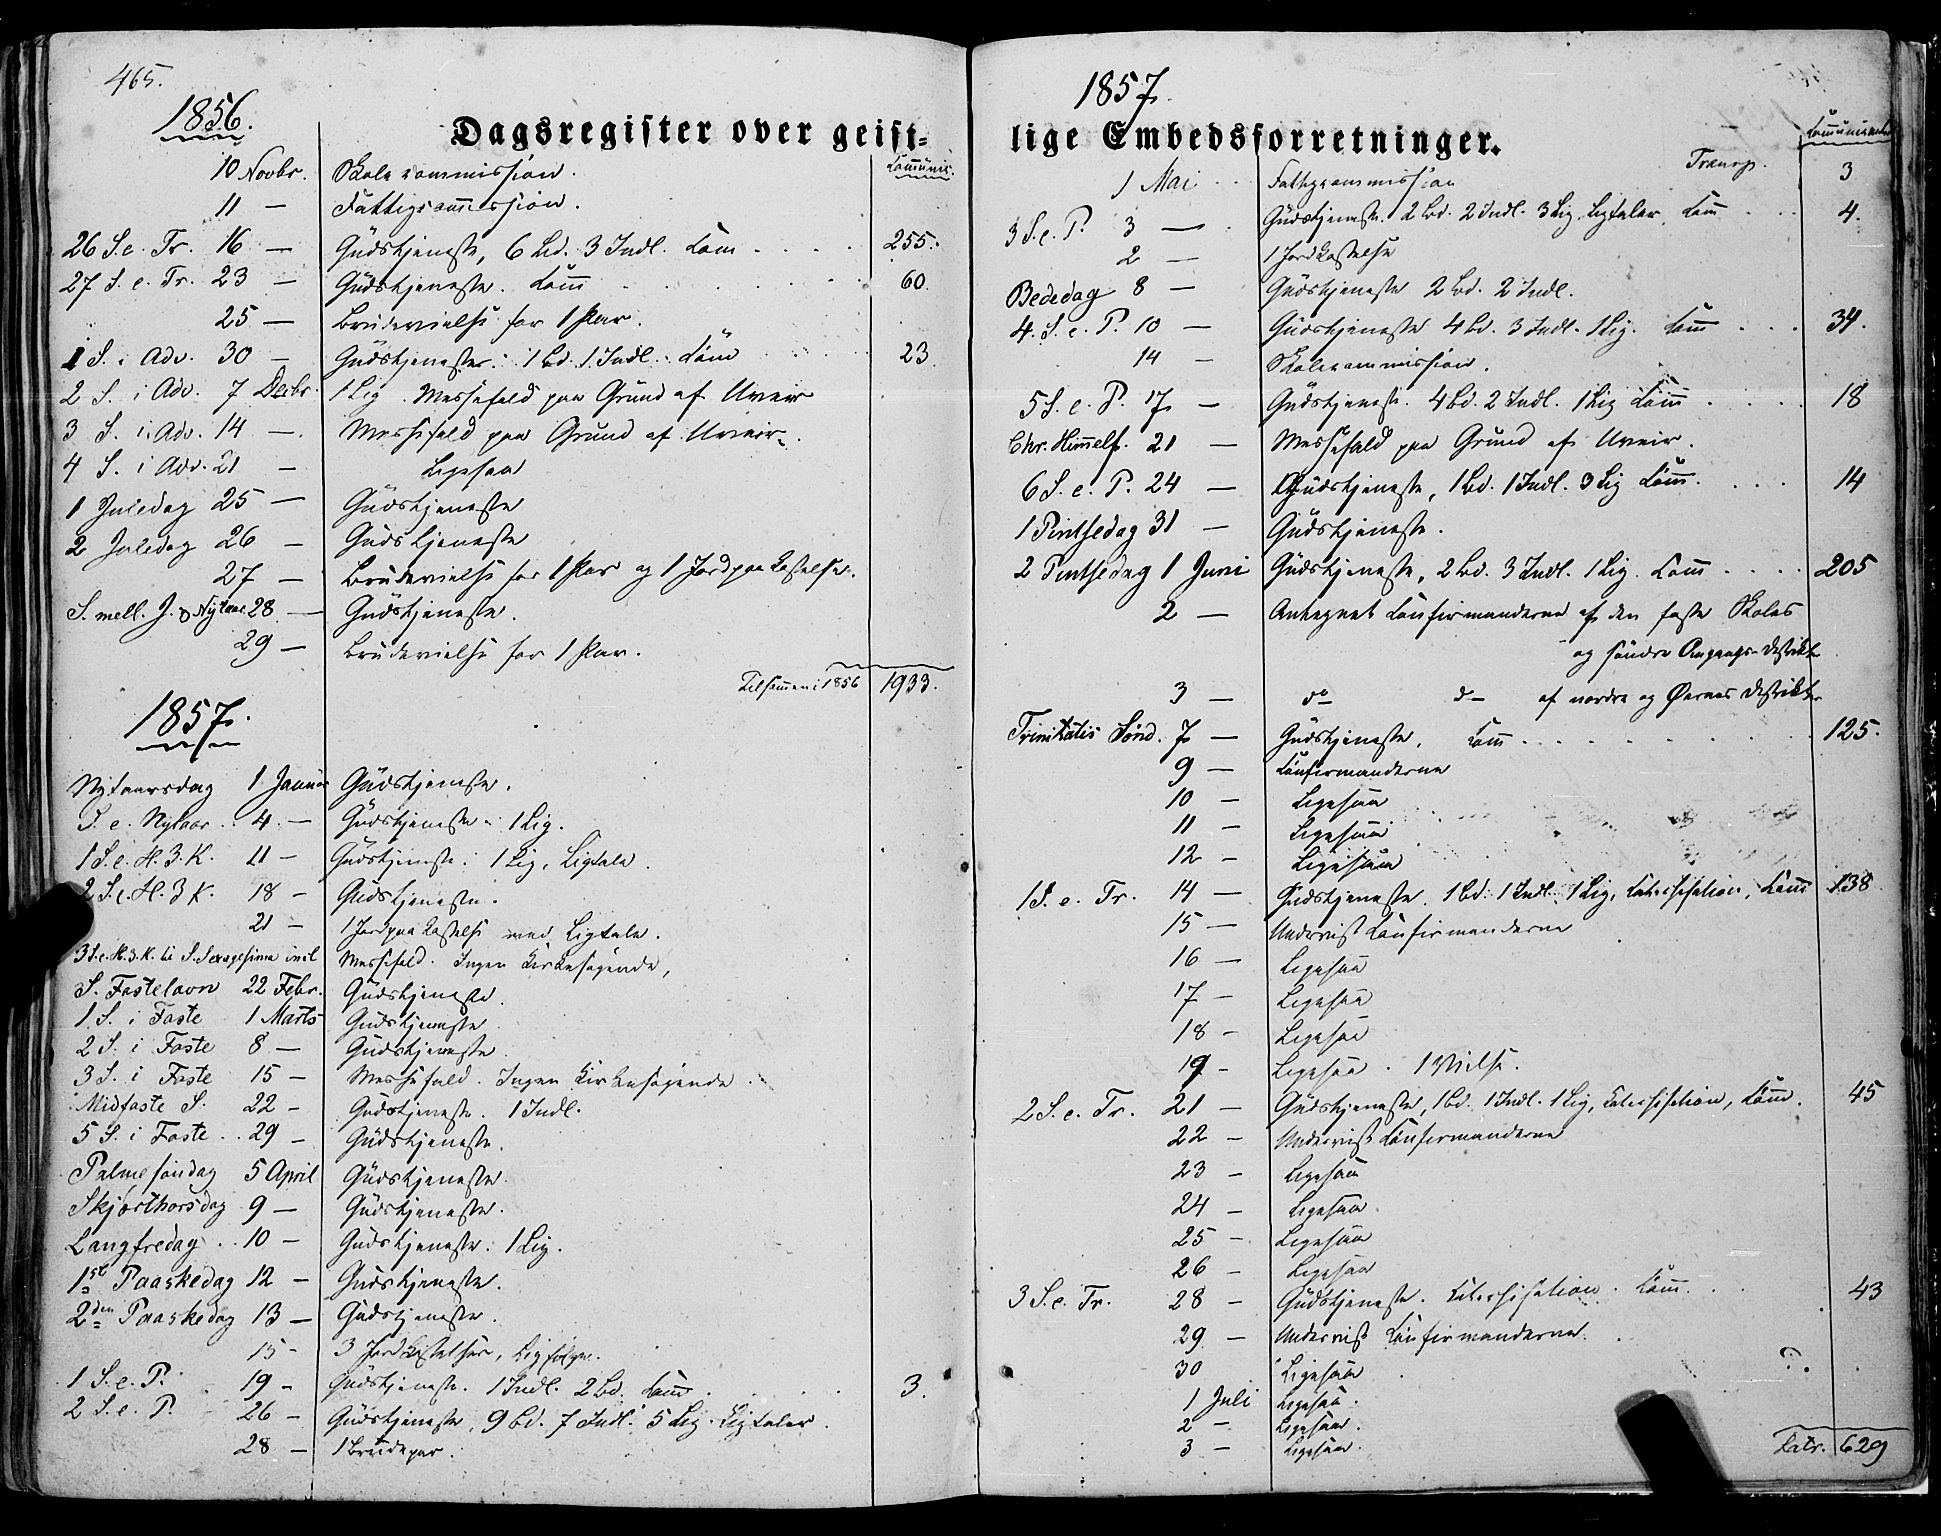 465.
1856.
Dagsregister over geist-
Communic.
10 Novbr. Skolecommission.
11 — Fattigcommission.
26 S. e. Tr. 16 — Gudstjeneste, 6 Bd. 3 Indl. Com 255.
27 S. e. Tr. 23 — Gudstjeneste. Comm 60.
25 — Brudevielse for 1 Par.
1 S. i Adv. 30 — Gudstjeneste. 1 Bd. 1 Indl. Com 23
2 S. i Adv. 7 Decbr 1 Lig. Messefald paa Grund af Uveir
3 S. i Adv. 14 — Messefald paa Grund af Uveir.
4 S. i Adv. 21 — Ligesaa
1 Juledag 25 — Gudstjeneste
2 Juledag 26 — Gudstjeneste
27 — Brudevielse for 1 Par og 1 Jordpaakastelse.
S. mell. J. & Nytaar 28 — Gudstjeneste.
29 — Brudevielse for 1 Par.
Tilsammen i 1856 1933.
1857.
Nytaarsdag 1 Januar Gudstjeneste.
S. e. Nytaar 4 — Gudstjeneste. 1 Lig.
1 S. e. H. 3. K. 11 — Gudstjeneste. 1 Lig, Ligtale.
2 S. e. H. 3 K. 18 — Gudstjeneste.
21 — 1 Jordpaakastelse med Ligtale.
3 S. e. H. 3. K. til S. Sexagesima incl Messefald. Ingen Kirkesøgende,
S. Fastelavn 22 Febr. Gudstjeneste.
1 S. i Faste 1 Marts Gudstjeneste.
2 S. i Faste 8 — Gudstjeneste.
3 S. i Faste 15 — Messefald. Ingen Kirkesøgende.
Midfaste S. 22 — Gudstjeneste. 1 Indl.
5 S. i Faste 29 — Gudstjeneste.
Palmesøndag 5 April Gudstjeneste.
Skjærthorsdag 9 — Gudstjeneste.
Langfredag 10 — Gudstjeneste. 1 Lig.
1ste Paaskedag 12 — Gudstjeneste.
2den Paaskedag 13 — Gudstjeneste.
15 — 3 Jordkastelser, Ligfølge.
1 S. e. P. 19 — Gudstjeneste. 1 Indl. 2 Bd. Com 3.
2 S. e. P. 26 — Gudstjeneste, 9 Bd. 7 Indl. 5 Lig. Ligtaler.
28 — 1 Brudepar.
1857.
lige Embedsforretninger.
Communicanter
Transp. 3
1 Mai Fattigcommission
3 S. e. P. 3 — Gudstjeneste. 2 Bd. 2 Indl. 3 Lig, Ligtaler. Com 4.
2 — 1 Jordkastelse
Bededag 8 — Gudstjeneste 2 Bd. 2 Indl.
4. S. e. P. 10 — Gudstjeneste 4 Bd. 3 Indl. 1 Lig. Comm 34.
14 — Skolecommission.
5 S. e. P. 17 — Gudstjeneste. 4 Bd. 2 Indl. 1 Lig Comm 18
Chr. Himmelf. 21 — Messefald paa Grund af Uveir.
6 S. e. P. 24 — Gudstjeneste, 1 Bd. 1 Indl. 3 Lig Comm. 14
1 Pintsedag 31 — Gudstjeneste.
2 Pintsedag 1 Juni Gudstjeneste, 2 Bd. 3 Indl. 1 Lig. Com 205
2 — Antegnet Confirmanderne af den faste Skoles
og søndre Omgangs-Distrikt
3 — do do af nordre og Øernes Distrikter
Trinitatis Sønd. 7 — Gudstjeneste, Com 125.
9 — Confirmanderne
10 — Ligesaa
11 — Ligesaa
12 — Ligesaa
1 S. e. Tr. 14 — Gudstjeneste. 1 Bd. 1 Indl. 1 Lig, Catechisation, Comm 138
15 — Underviist Confirmanderne
16 — Ligesaa
17 — Ligesaa
18 — Ligesaa
19 — Ligesaa. 1 Vielse.
2 S. e. Tr. 21 — Gudstjeneste, 1 Bd. 1 Indl. 1 Lig, Catechisation, Comm. 45
22 — Underviist Confirmanderne
23 — Ligesaa
24 — Ligesaa.
25 — Ligesaa
26 — Ligesaa
3 S. e. Tr. 28 — Gudstjeneste. Catechisation. Comm. 43
29 — Underviist Confirmanderne.
30 Ligesaa
1 Juli Ligesaa.
2 — Ligesaa.
3 — Ligesaa.
Latr. 629